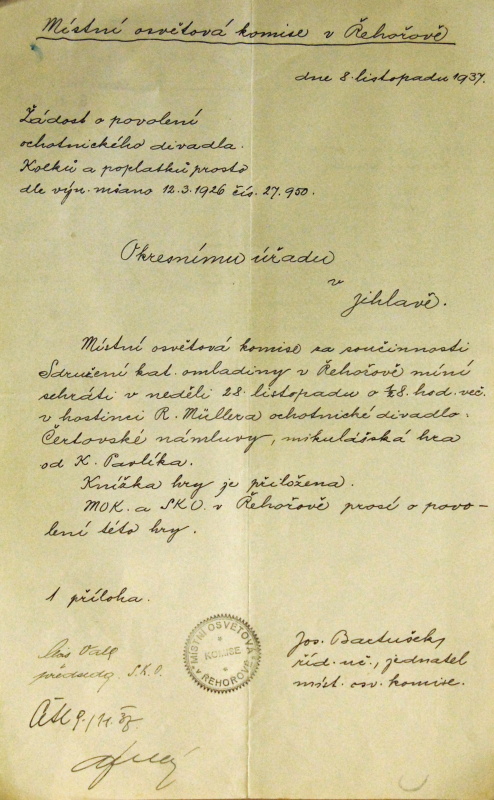 Místní osvětová komise v Řehořově
dne 8. listopadu 1937.
Žádost o povolení
ochotnického divadla.
Kolků a poplatků prosto
dle výn. mšano 12.3.1926 čís. 27.950.
Okresnímu úřadu
v
Jihlavě.
Místní osvětová komise za součinnosti
Sdružení kat. omladiny v Řehořově míní
sehráti v neděli 28. listopadu o ½8. hod. več.
v hostinci R. Müllera ochotnické divadlo:
Čertovské námluvy, mikulášská hra
od K. Pavlíka.
Knížka hry je přiložena.
MOK. a SKO. v Řehořově prosí o povo-
lení této hry.
1 příloha.
MÍSTNÍ OSVĚTOVÁ
KOMISE
V ŘEHOŘOVĚ
Jos. Bartušek,
říd. uč., jednatel
míst. osv. komise.
předseda S.K.O.